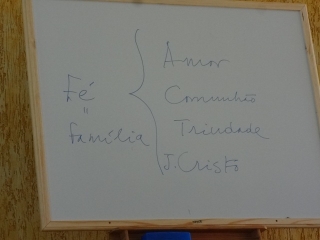 Fé
"
família
Amor
Comunhão
Trindade
J. Cristo